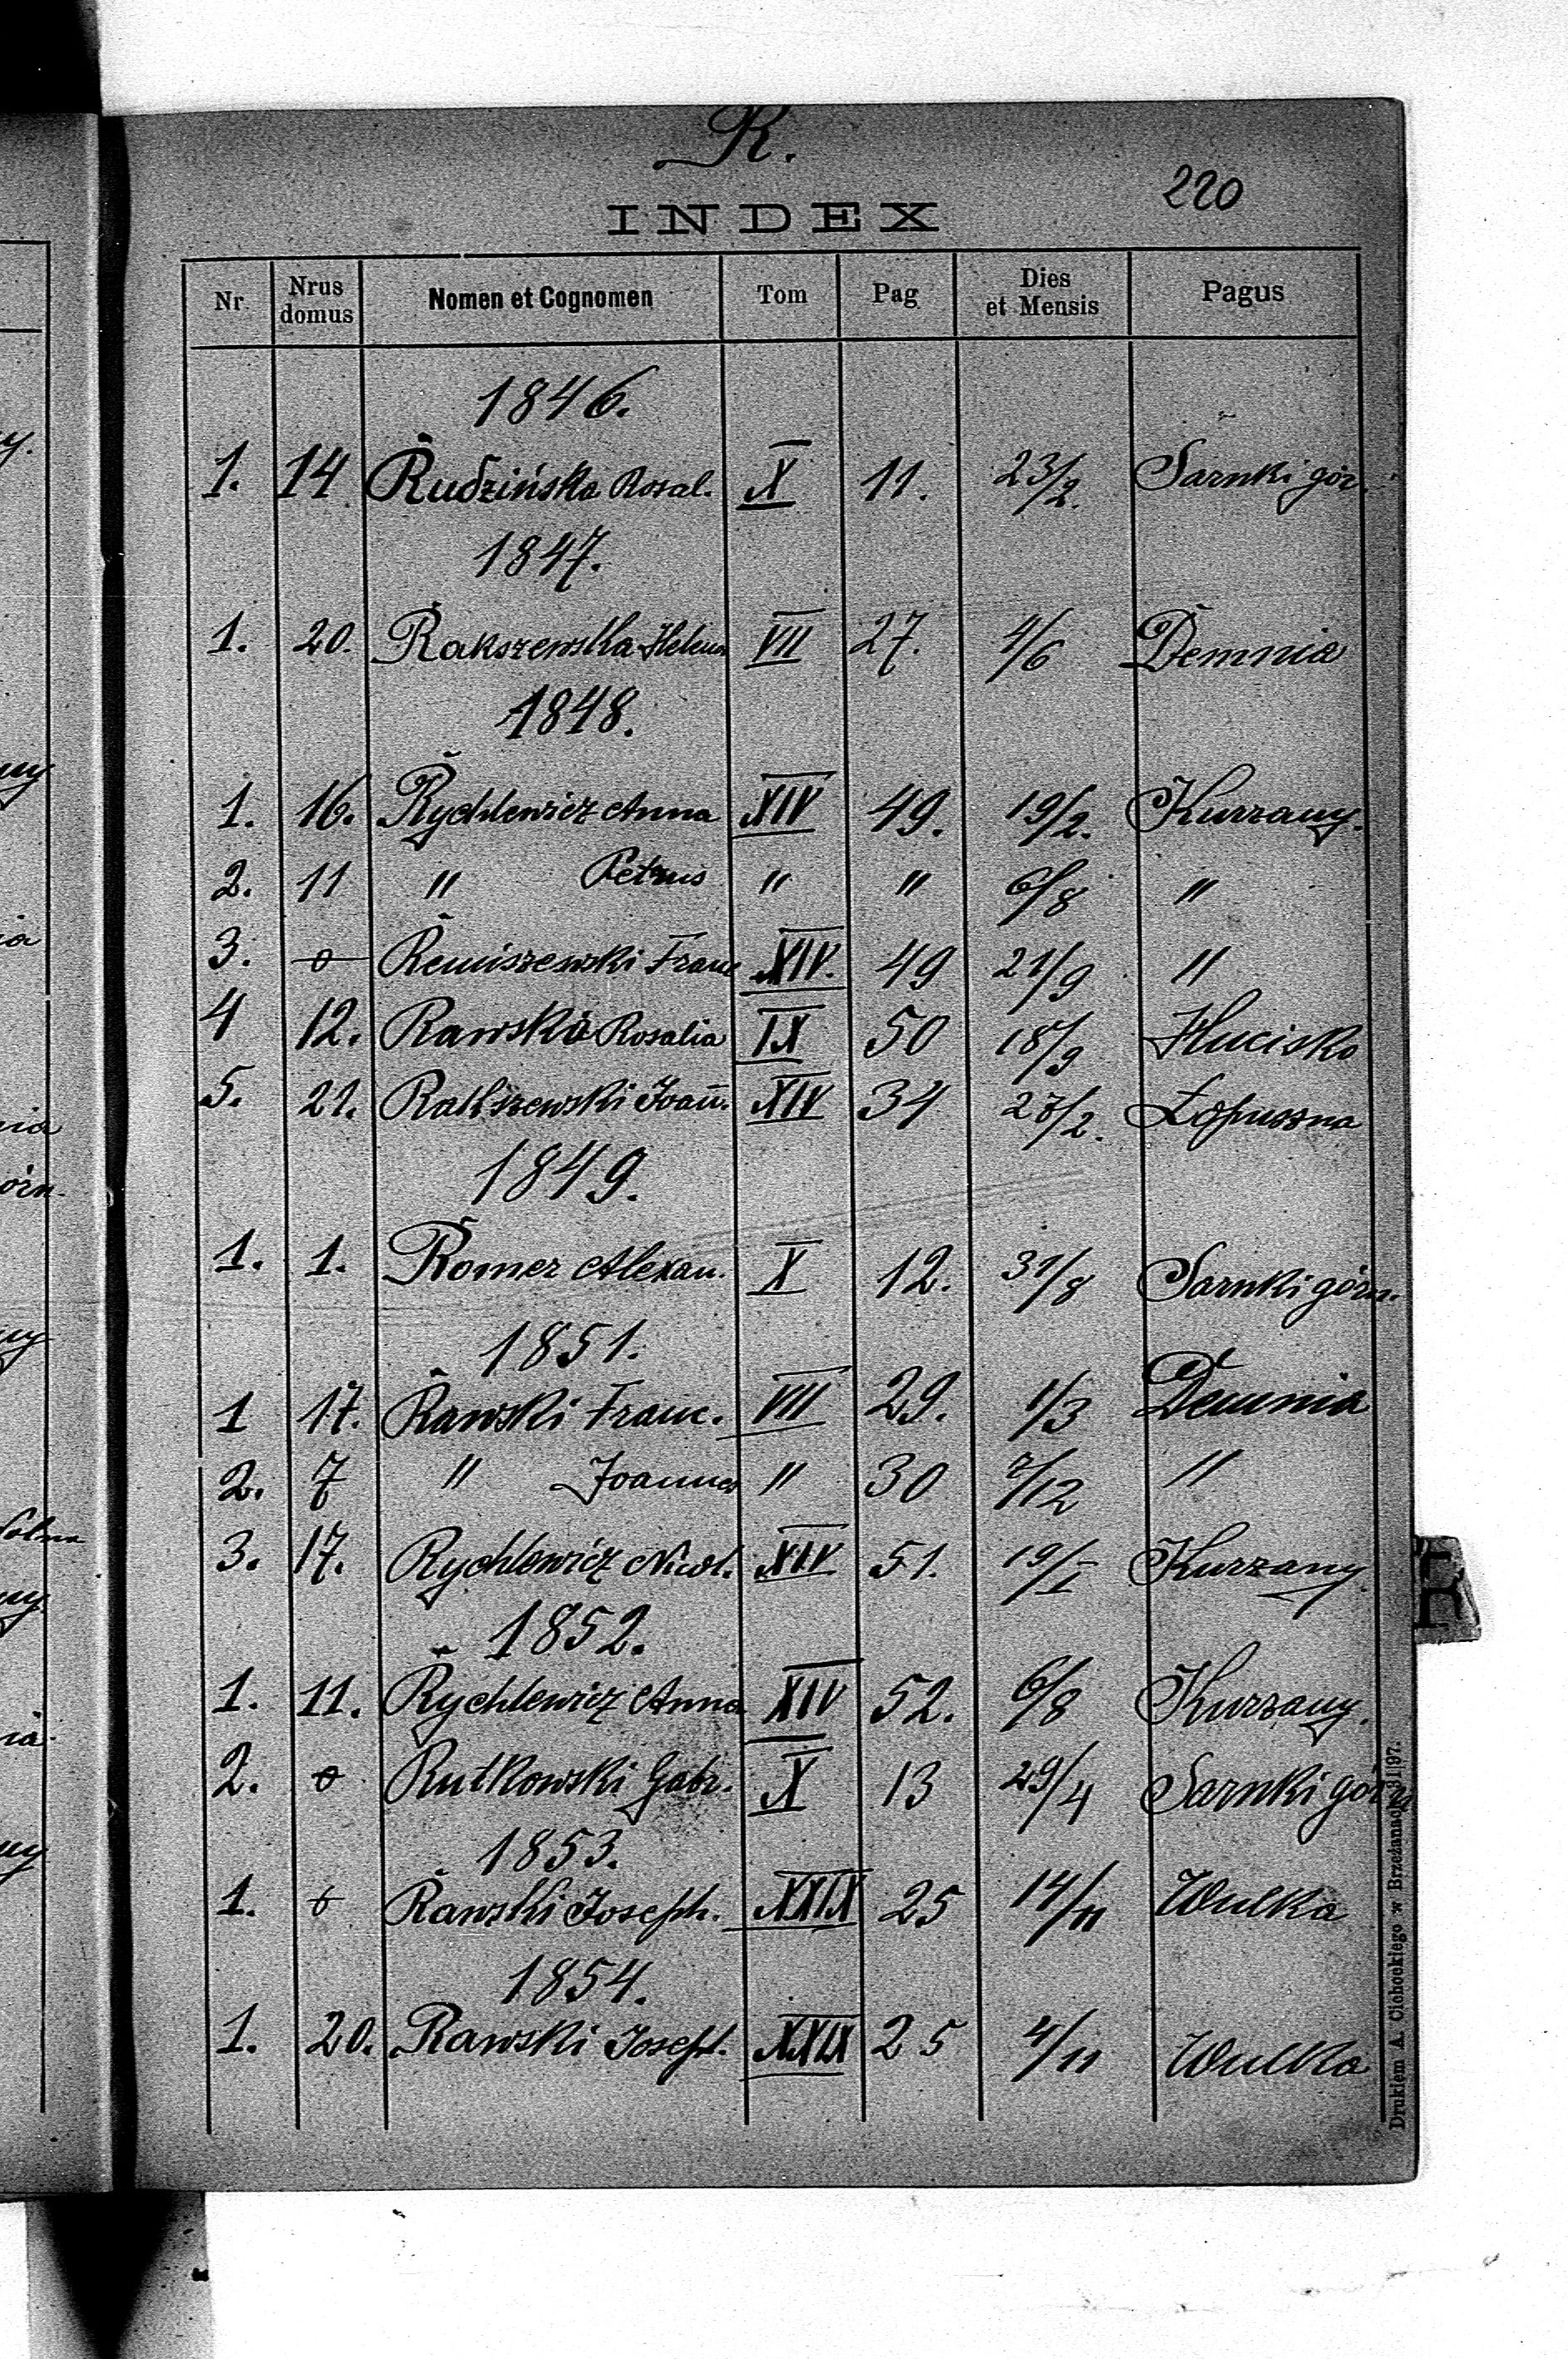 R.
220
INDEX
Nr Nrus domus Nomen et Cognomen Tom Pag Dies et Mensis Pagus
1846.
1. 14 Rudzińska Rosal. X 11. 23/2. Sarnki gór.
1847.
1. 20. Rakszewska Helena VII 27. 4/6 Demnia
1848.
1. 16. Rychlewicz Anna XIV 49. 19/2. Kurzany.
2. 11 " Petrus " " 6/8 "
3. o Remiszewski Franc XIV. 49 21/9 "
4 12. Rawska Rosalia IX 50 18/9 Hucisko
5. 21. Rakszewski Joan̄. XIV 34 27/2. Łopuszna
1849.
1. 1. Romer Alexan. X 12. 31/8 Sarnki górn.
1851.
1 17. Rawski Franc. VII 29. 1/3 Demnia
2. 7 " Joannes " 30 7/12 "
3. 17. Rychlewicz Nicol. XIV 51. 19/I Kurzany.
1852.
1. 11. Rychlewicz Anna XIV 52. 6/8 Kurzany.
2. o Rutkowski Gabr. X 13 29/4 Sarnki gór
1853.
1. o Rawski Joseph. XXIX 25 14/11 Wulka
1854.
1. 20. Rawski Joseph. XXIX 25 4/11 Wulka
Drukiem A. Cichockiego w Brzeżanach 3197.
R